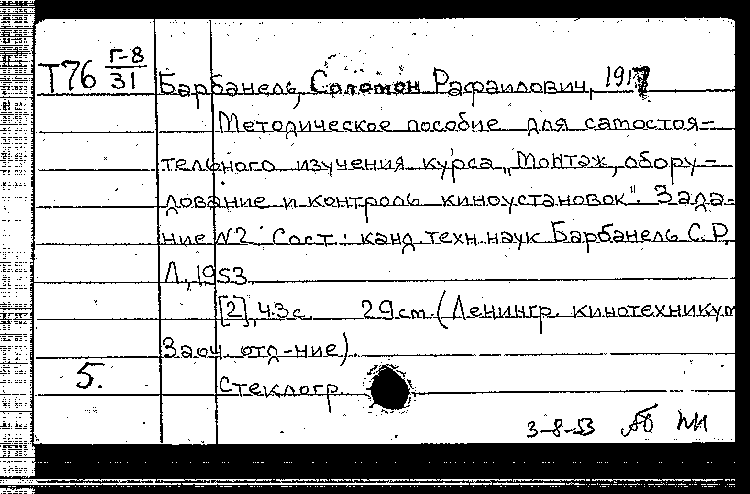 Т76 Г-8/31
Барбанель, Соломон Рафаилович, 1917
Методическое пособие для самостоя-
тельного изучения курса „Монтаж, обору-
дование и контроль киноустановок". Зада-
ние №2. Сост.: канд. техн. наук Барбанель С.Р.
Л., 1953.
[2], 43 с. 29 см. (Ленингр. кинотехникум
Заоч. отд-ние).
5. Стеклогр.
3-8-53